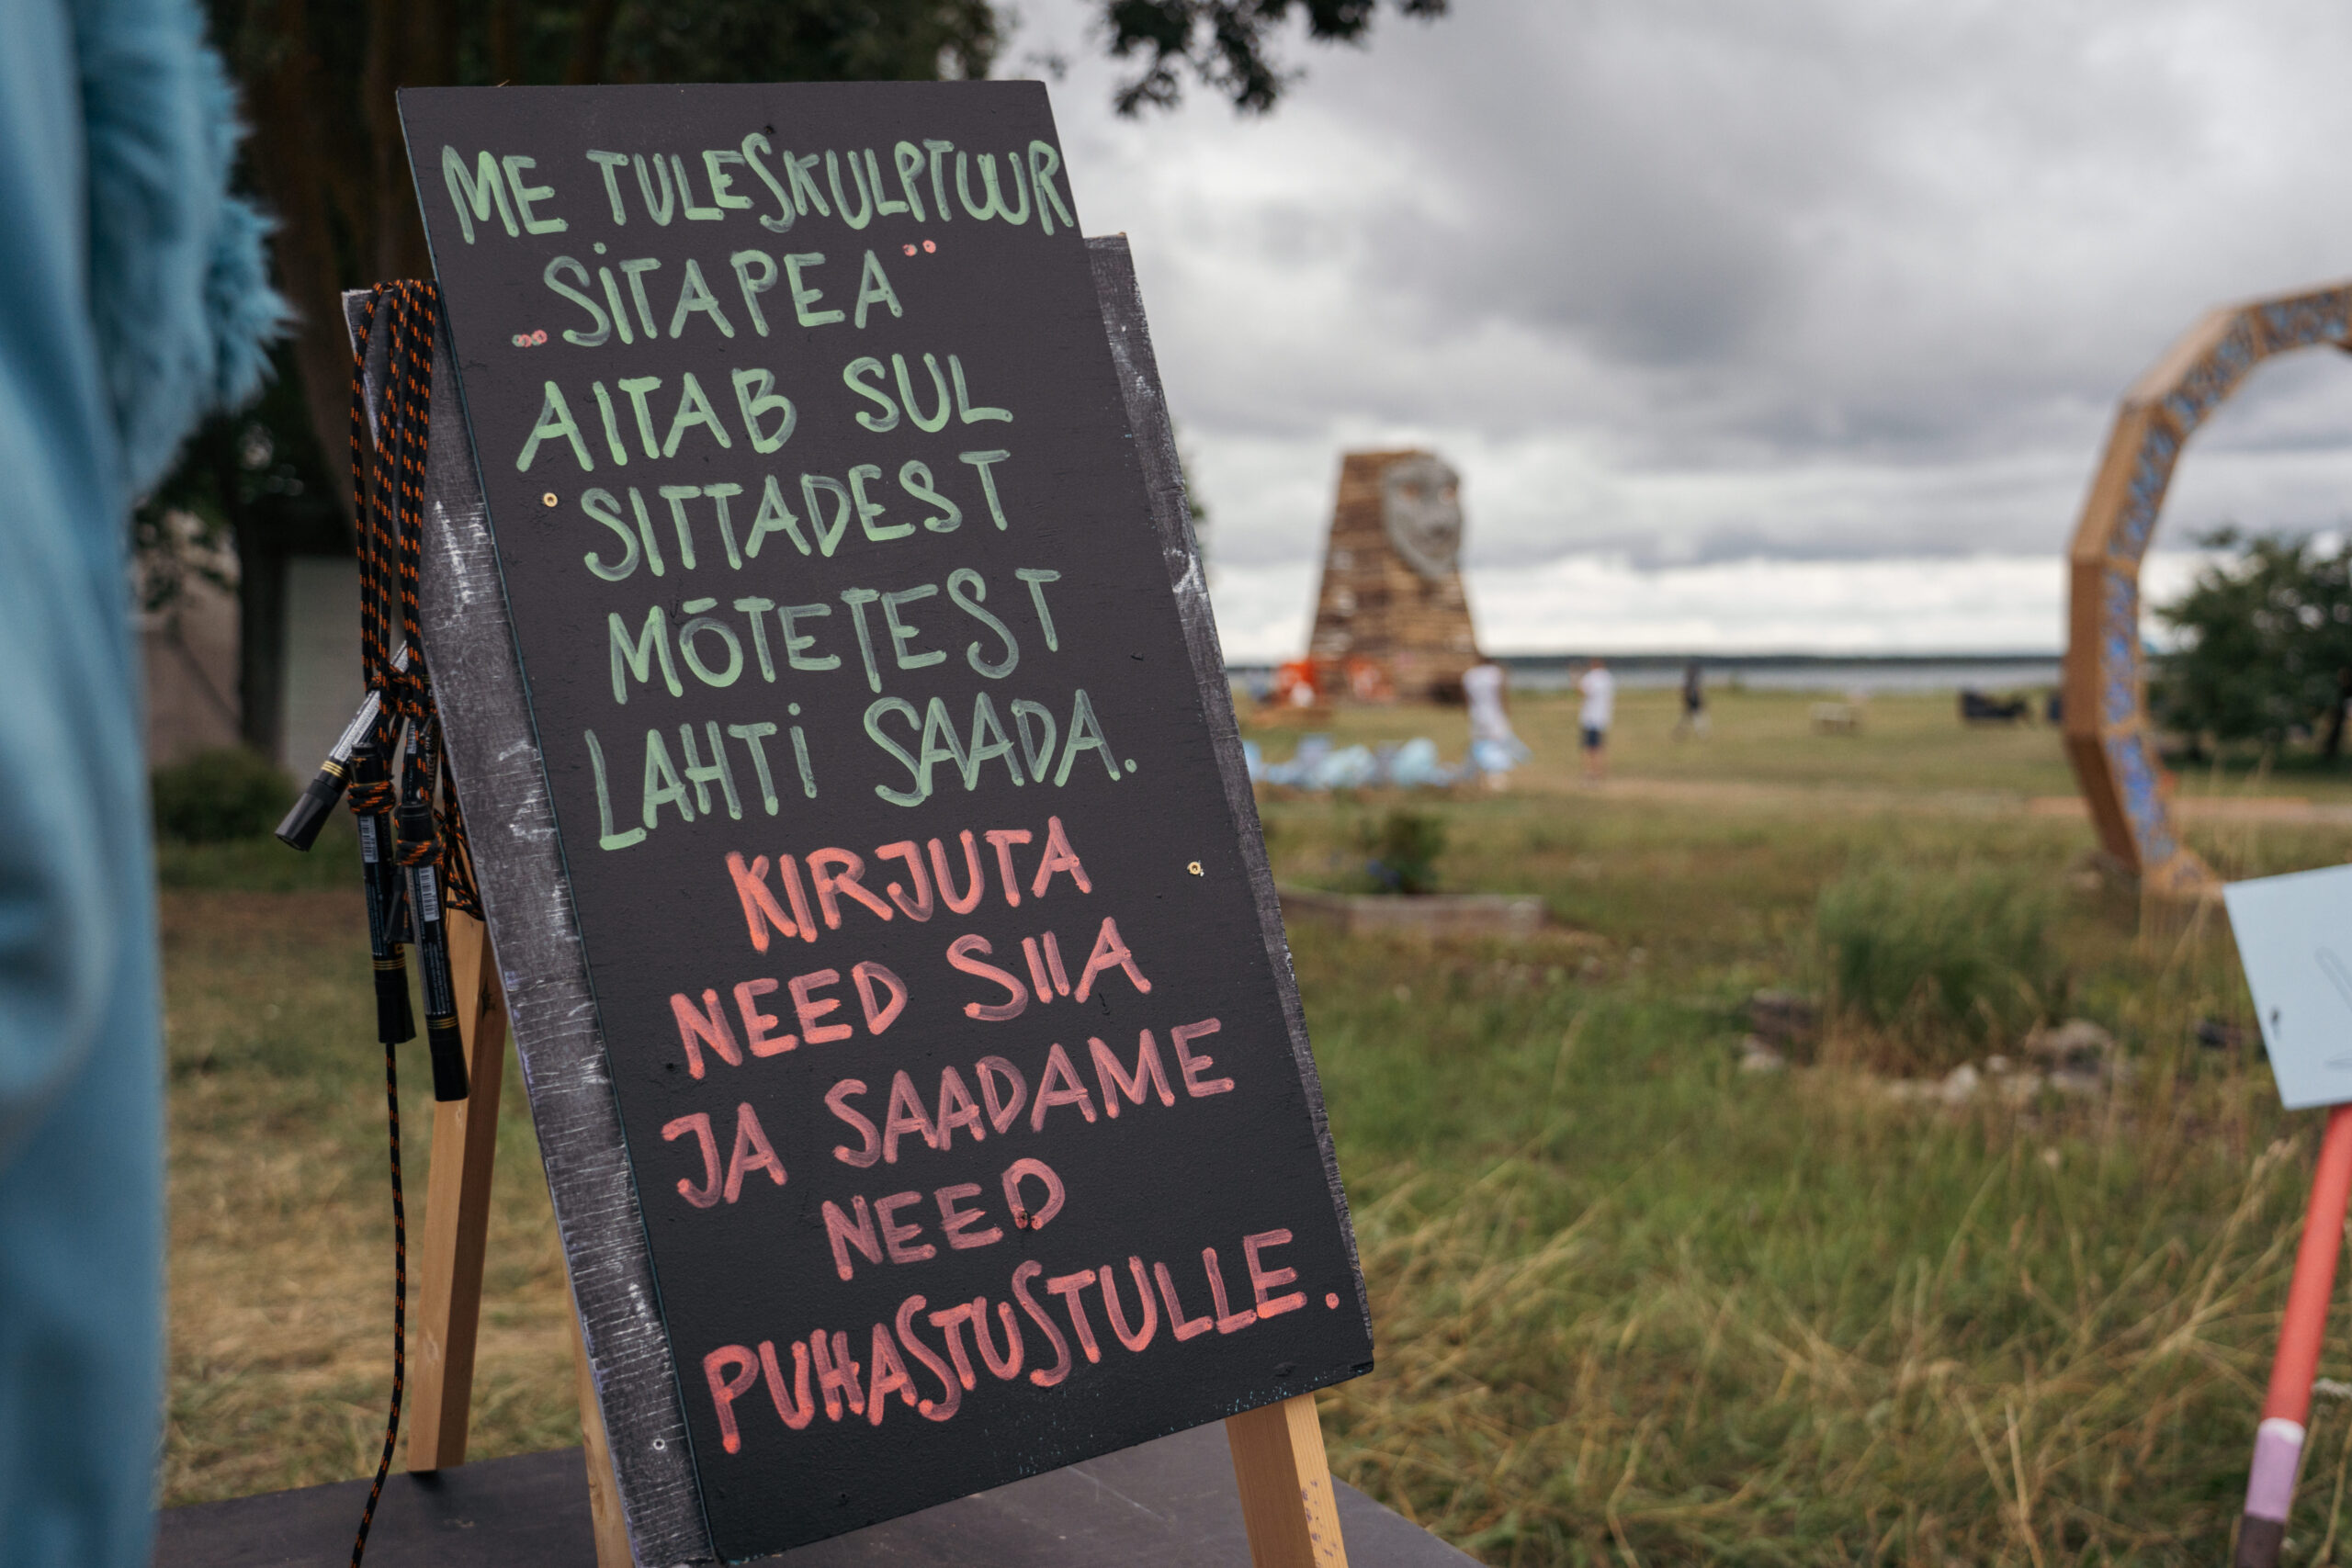 ME TULESKULPTUUR
„SITAPEA”
AITAB SUL
SITTADEST
MÕTETEST
LAHTI SAADA.
KIRJUTA
NEED SIIA
JA SAADAME
NEED
PUHASTUSTULLE.